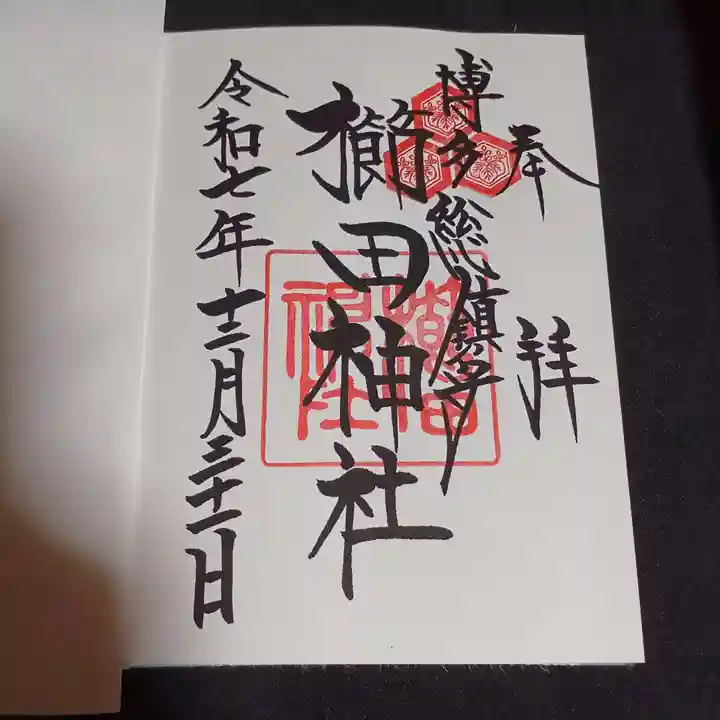 奉拝
博多総鎮守
櫛田神社
櫛田
神社
令和七年十二月三十一日